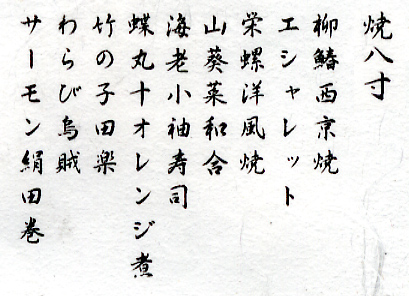 焼八寸
柳鰆西京焼
エシャレット
栄螺洋風焼
山葵菜和合
海老小袖寿司
蝶丸十オレンジ煮
竹の子田楽
わらび烏賊
サーモン絹田巻